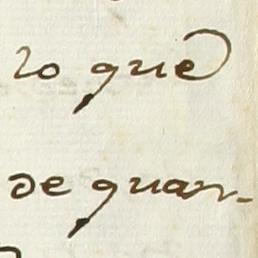 lo que
de quan-